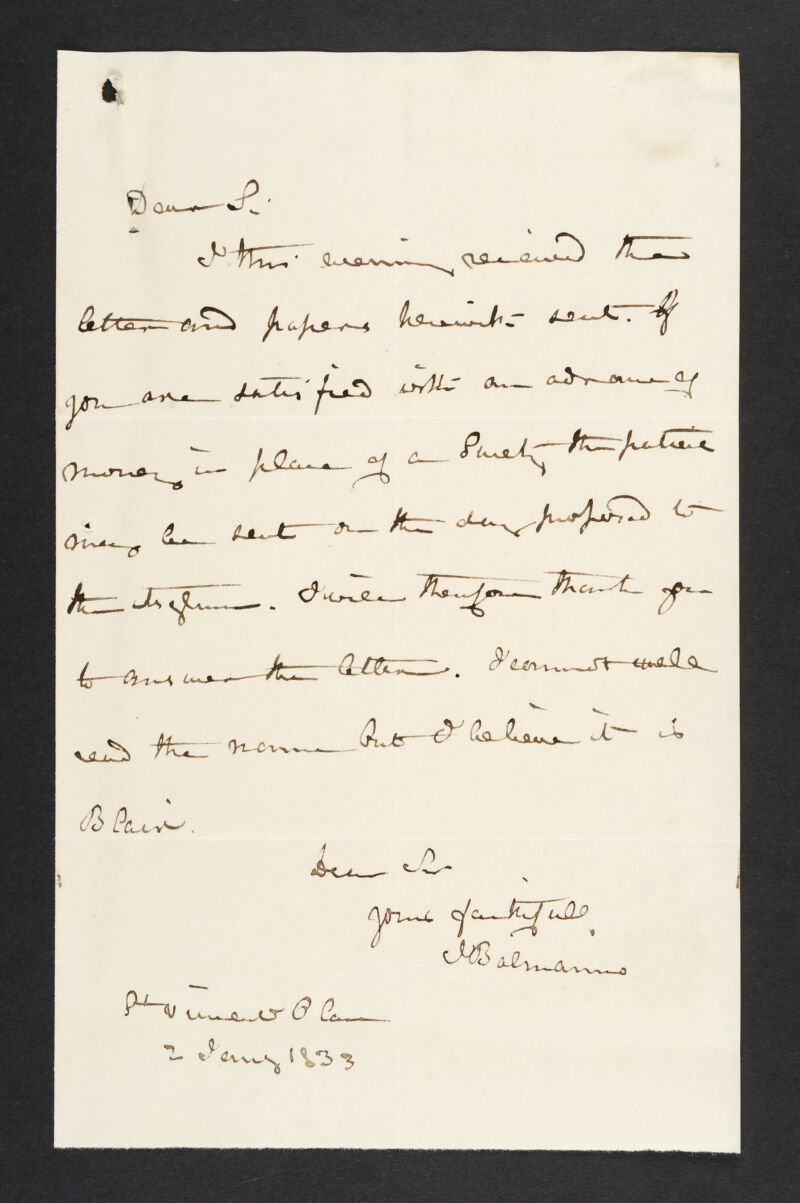 Dear Sir
I this evening received the
letter and papers herewith sent. If
you are satisfied with an advance of
money in place of a Surety the patient
may be sent on the day proposed to
the Asylum. I will therefore thank you
to answer the letter. I cannot well
read the name but I believe it is
Blair.
Dear Sir
yours faithfully
J Balmanno
St Vincent Place
2 Jany 1833